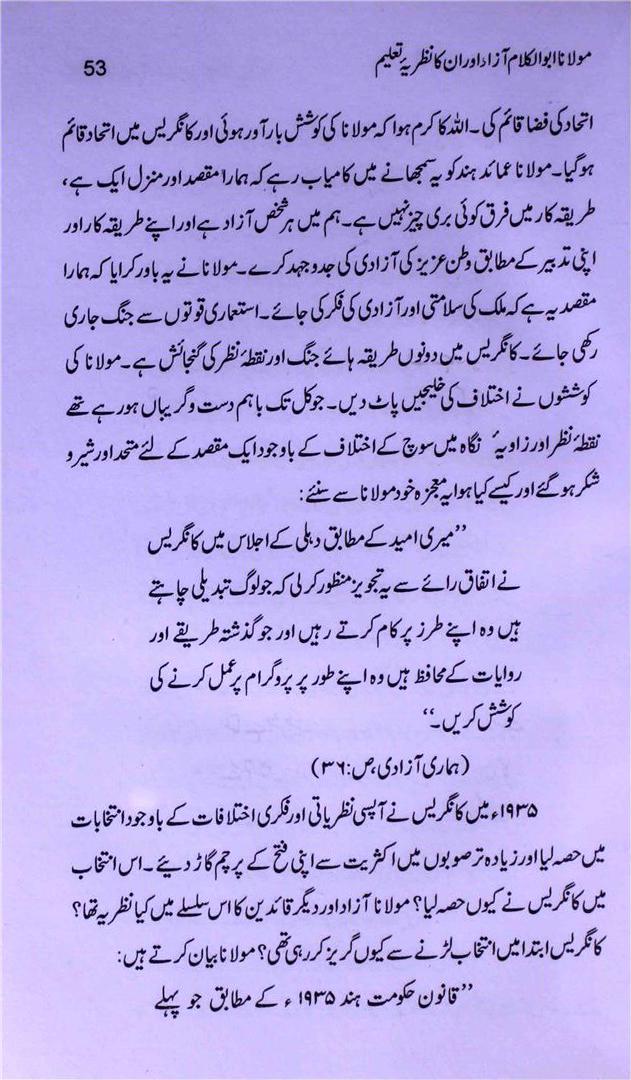 مولانا ابوالکلام آزاد اور ان کا نظریۂ تعلیم
53
اتحاد کی فضا قائم کی۔ اللہ کا کرم ہوا کہ مولانا کی کوشش بارآور ہوئی اور کانگریس میں اتحاد قائم
ہوگیا۔ مولانا عمائد ہند کو یہ سمجھانے میں کامیاب رہے کہ ہمارا مقصد اور منزل ایک ہے،
طریقہ کار میں فرق کوئی بری چیز نہیں ہے۔ ہم میں ہر شخص آزاد ہے اور اپنے طریقہ کار اور
اپنی تدبیر کے مطابق وطن عزیز کی آزادی کی جدوجہد کرے۔ مولانا نے یہ باور کرایا کہ ہمارا
مقصد یہ ہے کہ ملک کی سلامتی اور آزادی کی فکر کی جائے۔ استعماری قوتوں سے جنگ جاری
رکھی جائے۔ کانگریس میں دونوں طریقہ ہائے جنگ اور نقطۂ نظر کی گنجائش ہے۔ مولانا کی
کوششوں نے اختلاف کی خلیجیں پاٹ دیں۔ جو کل تک باہم دست و گریباں ہو رہے تھے
نقطۂ نظر اور زاویۂ نگاہ میں سوچ کے اختلاف کے باوجود ایک مقصد کے لئے متحد اور شیر و
شکر ہوگئے اور کیسے کیا ہوا یہ معجزہ خود مولانا سے سنئے:
”میری امید کے مطابق دہلی کے اجلاس میں کانگریس
نے اتفاق رائے سے یہ تجویز منظور کرلی کہ جو لوگ تبدیلی چاہتے
ہیں وہ اپنے طرز پر کام کرتے رہیں اور جو گذشتہ طریقے اور
روایات کے محافظ ہیں وہ اپنے طور پر پروگرام پر عمل کرنے کی
کوشش کریں۔“
(ہماری آزادی، ص: ۳۶)
۱۹۳۵ء میں کانگریس نے آپسی نظریاتی اور فکری اختلافات کے باوجود انتخابات
میں حصہ لیا اور زیادہ تر صوبوں میں اکثریت سے اپنی فتح کے پرچم گاڑ دیئے۔ اس انتخاب
میں کانگریس نے کیوں حصہ لیا؟ مولانا آزاد اور دیگر قائدین کا اس سلسلے میں کیا نظریہ تھا؟
کانگریس ابتدا میں انتخاب لڑنے سے کیوں گریز کر رہی تھی؟ مولانا بیان کرتے ہیں:
”قانون حکومت ہند ۱۹۳۵ء کے مطابق جو پہلے